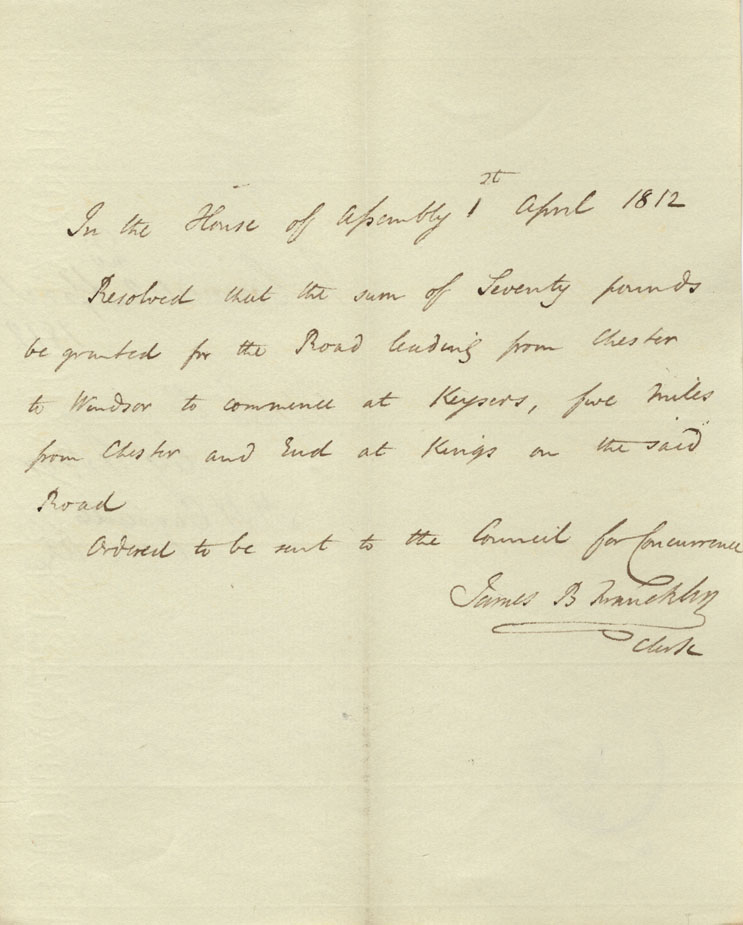 In the House of Assembly 1st April 1812
Resolved that the sum of Seventy pounds
be granted for the Road leading from Chester
to Windsor to commence at Keysers, five Miles
from Chester and End at Kings on the said
Road
Ordered to be sent to the Council for Concurrence
James B Franckling
Clerk